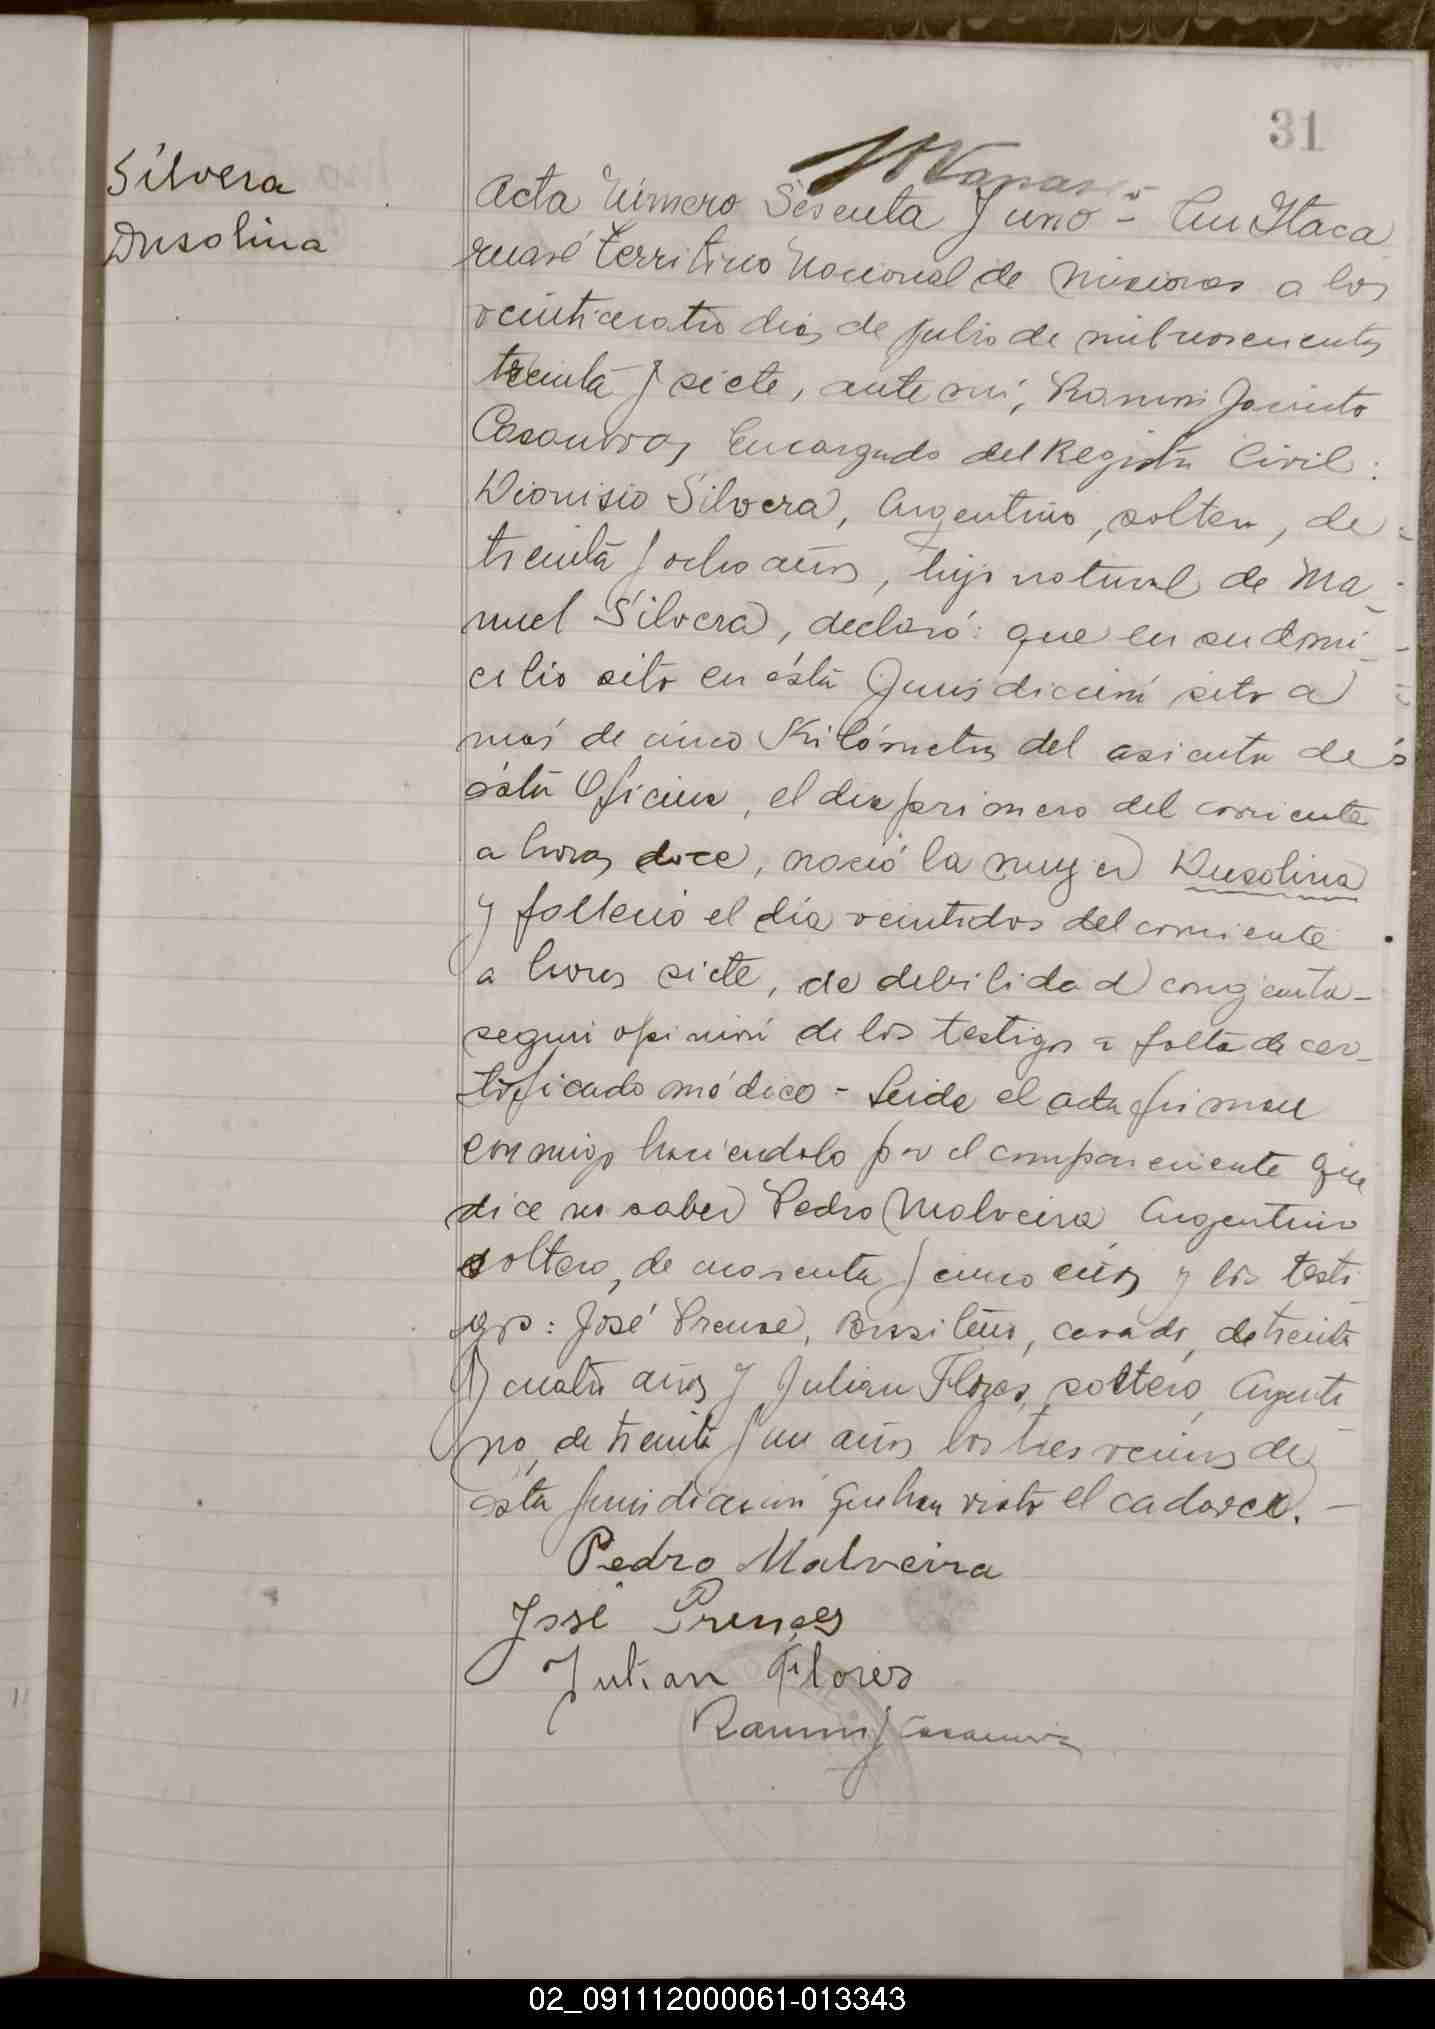 31
Silvera
Dusolina
Acta Número Sesenta y uno - En Itaca
ruaré Territorio Nacional de Misiones a los
veinticuatro dias de julio de mil novecientos
treinta y siete, ante mí, Ramón Jacinto
Casanova, Encargado del Registro Civil:
Dionisio Silvera, Argentino, soltero, de
treinta y ocho años, hijo natural de Ma
nuel Silvera, declaró: que en su domi
cilio sito en ésta Jurisdicción sito a
más de cinco Kilómetros del asiento de
ésta Oficina, el dia primero del corriente
a horas doce, nació la mujer Dusolina
y falleció el día veintidos del corriente
a horas siete, de debilidad congenta-
según opinión de los testigos a falta de cer
tificado médico - Leida el acta firman
conmigo haciendolo por el compareciente que
dice no saber Pedro Malveira Argentino
soltero, de cuarenta y cinco años y los testi
gos: José Preuse, Brasileño, casado, de treinta
y cuatro años y Julian Flores, soltero, Argenti
no, de treinta y un años los tres vecinos de
ésta jurisdicción que han visto el cadaver. -
Pedro Malveira
José
Julian Flores
Ramón J Casanova
02_091112000061-013343